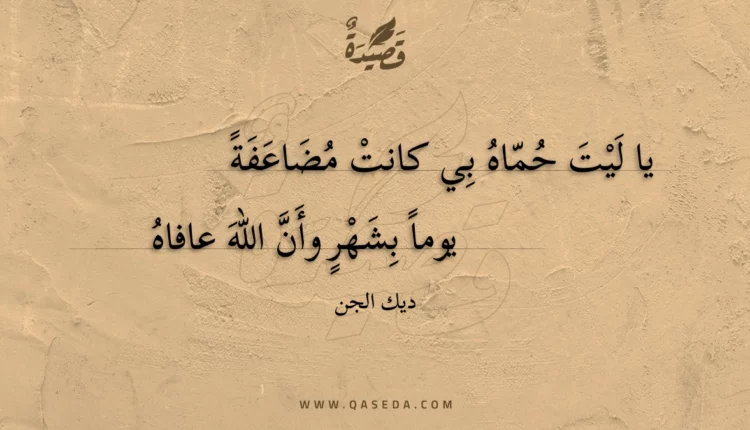 قَصِيْدَةٌ
يا لَيْتَ حُمّاهُ بِي كانتْ مُضَاعَفَةً
يوماً بِشَهْرٍ وأَنَّ اللهَ عافاهُ
ديك الجن
WWW.QASEDA.COM